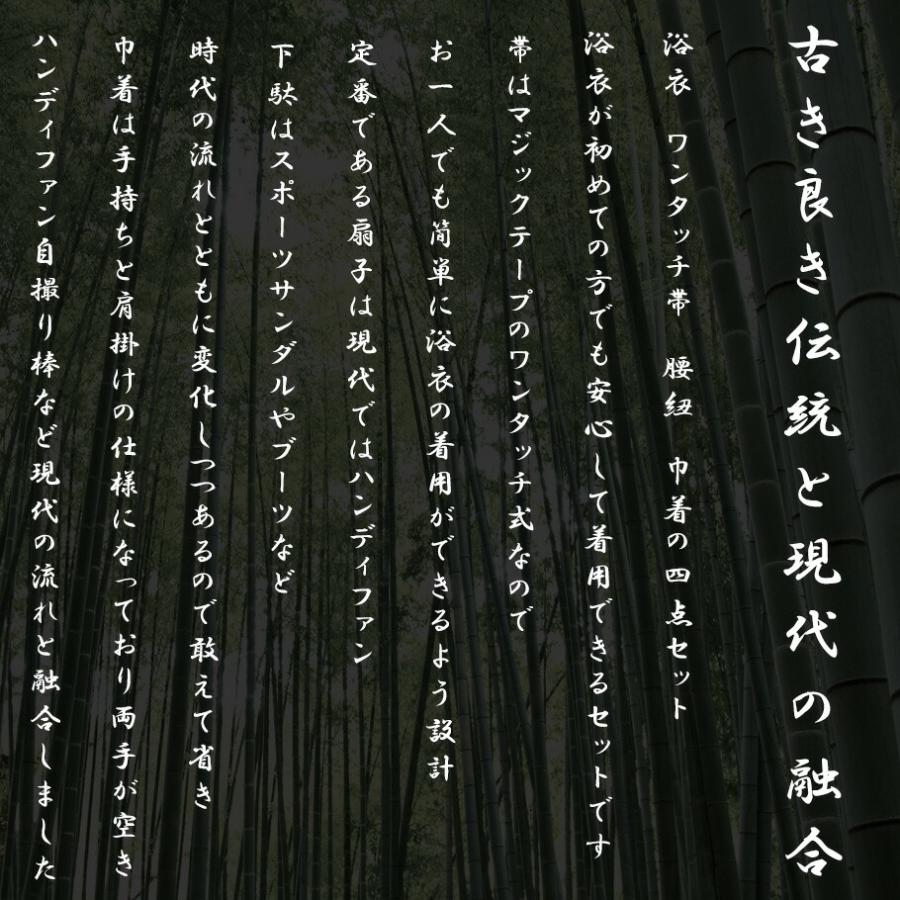 古き良き伝統と現代の融合
浴衣　ワンタッチ帯　腰紐　巾着の四点セット
浴衣が初めての方でも安心して着用できるセットです
帯はマジックテープのワンタッチ式なので
お一人でも簡単に浴衣の着用ができるよう設計
定番である扇子は現代ではハンディファン
下駄はスポーツサンダルやブーツなど
時代の流れとともに変化しつつあるので敢えて省き
巾着は手持ちと肩掛けの仕様になっており両手が空き
ハンディファン自撮り棒など現代の流れと融合しました